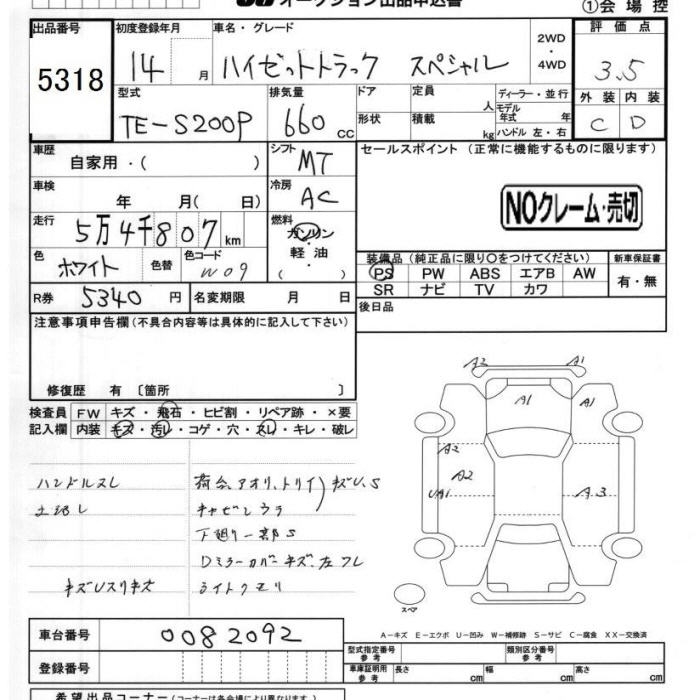 オークション出品申込書 ①会場控
出品番号 初度登録年月 車名・グレード 2WD・4WD 評価点
5318 14 月 ハイゼットトラック スペシャル 3.5
型式 排気量 ドア 定員 人 ディーラー・並行 外装 内装
TE-S200P 660 cc 形状 積載 kg モデル年式 年 ハンドル 左・右 C D
車歴 自家用・( ) シフト MT セールスポイント (正常に機能するものに限ります)
車検 年 月( 日) 冷房 AC
NOクレーム・売切
走行 5万4千807km 燃料 ガソリン・軽油・( )
色 ホワイト 色替 色コード W09
装備品(純正品に限り○をつけてください) 新車保証書
PS PW ABS エアB AW 有・無
SR ナビ TV カワ
R券 5340円 名変期限 月 日 後日品
注意事項申告欄(不具合内容等は具体的に記入して下さい)
修復歴 有 〔箇所 〕
検査員 FW キズ・飛石・ヒビ割・リペア跡・×要
記入欄 内装 キズ・汚レ・コゲ・穴・スレ・キレ・破レ
A2 A1
A1 A1
ハンドルスレ 荷台、アオリ、トリイ キズU、S
A2
A2
UA1 A3
下廻り一部S
Dミラーカバーキズ、左フレ
ライトクモリ
スペア
A-キズ E-エクボ U-凹み W-補修跡 S-サビ C-腐食 XX-交換済
車台番号 0082092 型式指定番号 参考 類別区分番号 参考
登録番号 車庫証明用 参考 長さ cm 幅 cm 高さ cm
希望出品コーナー(コーナーは各会場により異なります。)